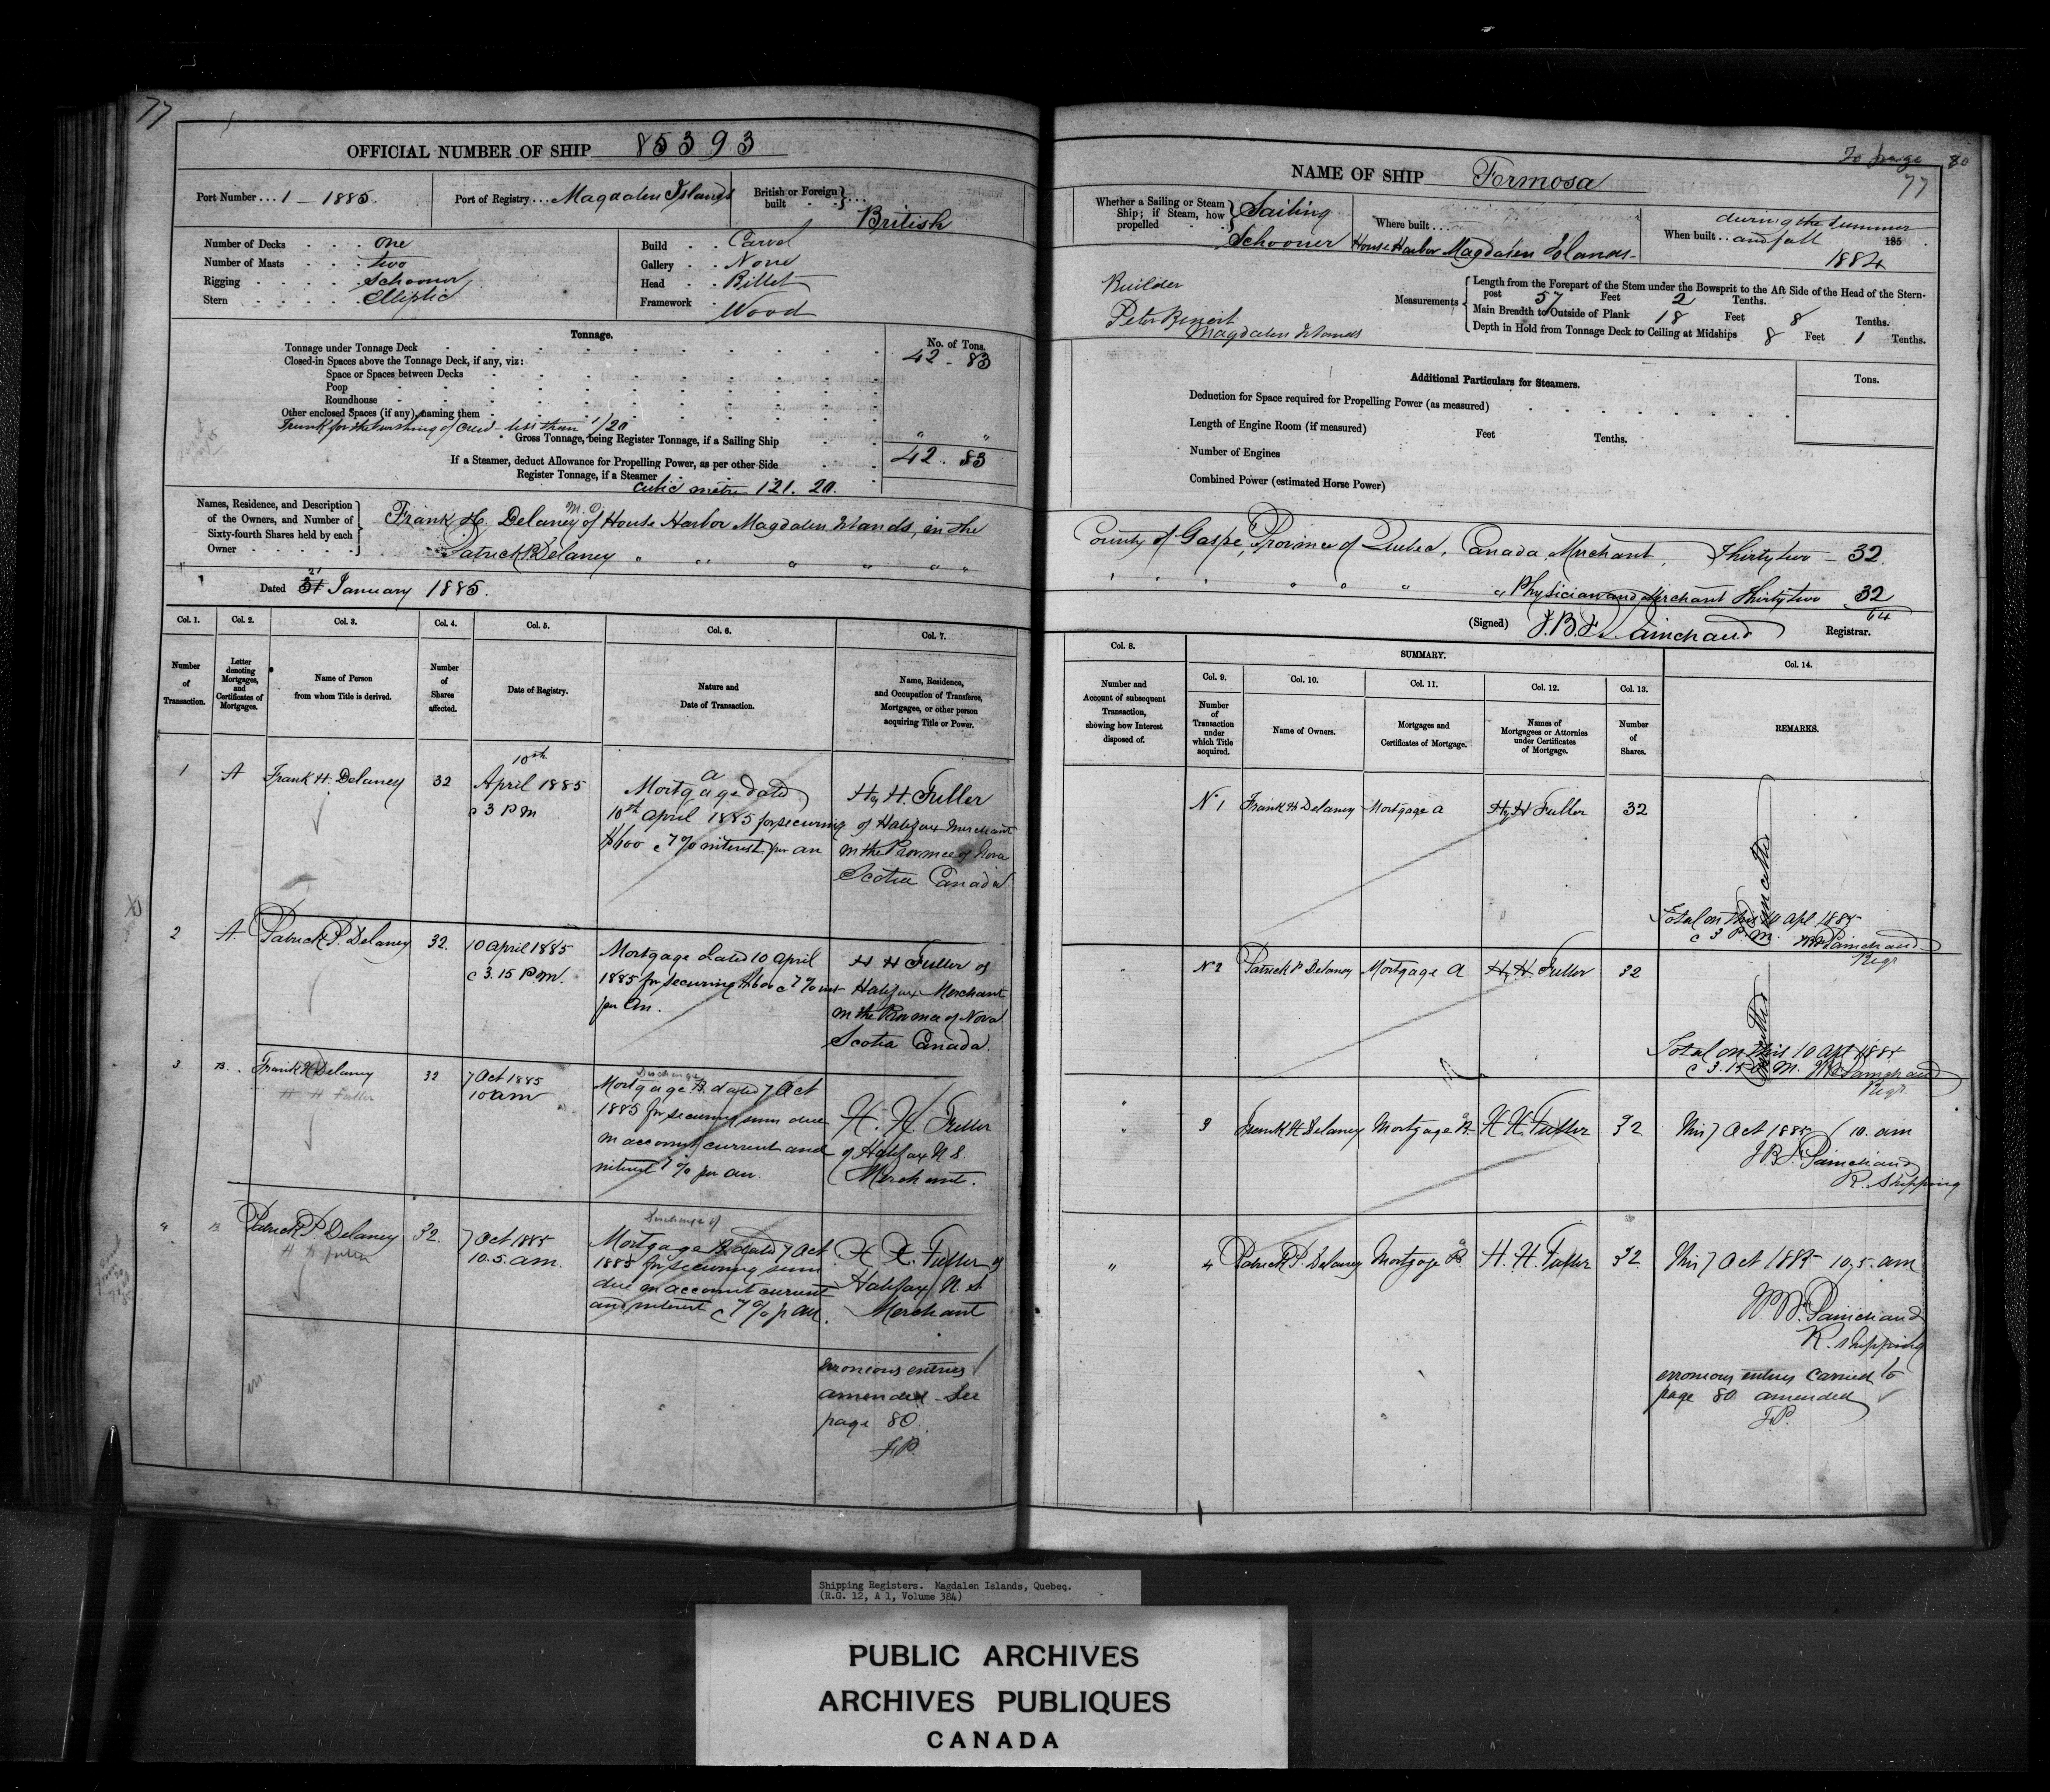 77
OFFICIAL NUMBER OF SHIP 85393
Port Number ... 1 - 1885.
Port of Registry ... Magdalen Islands
British or Foreign built
British
Number of Decks one
Number of Masts two
Rigging Schooner
Stern Elliptic
Build Carvel
Gallery None
Head Billet
Framework Wood
Tonnage.
No. of Tons.
Tonnage under Tonnage Deck 42 - 83
Closed-in Spaces above the Tonnage Deck, if any, viz:
Space or Spaces between Decks
Poop
Roundhouse
Other enclosed Spaces (if any), naming them
Trunk for the of Crew - less than 1/20
Gross Tonnage, being Register Tonnage, if a Sailing Ship " "
If a Steamer, deduct Allowance for Propelling Power, as per other Side 42. 83
Register Tonnage, if a Steamer
cubic metre 121. 20.
Names, Residence, and Description of the Owners, and Number of Sixty-fourth Shares held by each Owner
Frank H. Delaney of House Harbor Magdalen Islands, in the
Patrick P. Delaney " " " " " "
Dated 21 January 1885.
Col. 1. Col. 2. Col. 3. Col. 4. Col. 5. Col. 6. Col. 7.
Number of Transaction.
Letter denoting Mortgages, and Certificates of Mortgages.
Name of Person from whom Title is derived.
Number of Shares affected.
Date of Registry.
Nature and Date of Transaction.
Name, Residence, and Occupation of Transferee, Mortgagee, or other person acquiring Title or Power.
1 A Frank H. Delaney 32
10th
April 1885
@ 3 PM
A
Mortgage dated
10th April 1885 for securing
$600 @ 7% interest per an
Hy H. Fuller
of Halifax Merchant
in the Province of Nova
Scotia Canada.
2 A. Patrick P. Delaney 32.
10 April 1885
@ 3.15 P.M.
Mortgage dated 10 April
1885 for securing $600 @ 7% int
per An.
H H Fuller of
Halifax Merchant
in the Province of Nova
Scotia Canada.
3 B. Frank H Delaney 32
H H Fuller
7 Oct 1885
10 am
Discharge
Mortgage B. dated 7 Oct
1885 for securing sum due
on account current and
interest 7% per an.
H. H. Fuller
of Halifax N S.
Merchant.
4 B Patrick P Delaney 32.
H H Fuller
7 Oct 1885
10.5. am.
Discharge of
Mortgage B dated 7 Oct
1885 for securing sum
due on account current
and interest @ 7% p an.
H. H. Fuller of
Halifax N. S
Merchant
erroneous entries
amended - See
page 80.
J.P.
To page 80
77
NAME OF SHIP Formosa
Whether a Sailing or Steam Ship; if Steam, how propelled
Sailing
Schooner
Where built ...
House Harbor Magdalen Islands -
When built .. during the summer
and fall 185
1884
Builder
Peter Benoit
Magdalen Islands
Measurements
Length from the Forepart of the Stem under the Bowsprit to the Aft Side of the Head of the Stern-
post 57 Feet 2 Tenths.
Main Breadth to Outside of Plank 18 Feet 8 Tenths.
Depth in Hold from Tonnage Deck to Ceiling at Midships 8 Feet 1 Tenths.
Additional Particulars for Steamers.
Tons.
Deduction for Space required for Propelling Power (as measured)
Length of Engine Room (if measured) Feet Tenths.
Number of Engines
Combined Power (estimated Horse Power)
County of Gaspe, Province of Quebec, Canada, Merchant, Thirty two - 32.
" " " " " " " Physician and Merchant Thirty two 32
64
(Signed) J.B.F. Painchaud Registrar.
Col. 8.
Number and Account of subsequent Transaction, showing how Interest disposed of.
SUMMARY.
Col. 9. Col. 10. Col. 11. Col. 12. Col. 13. Col. 14.
Number of Transaction under which Title acquired.
Name of Owners.
Mortgages and Certificates of Mortgage.
Names of Mortgagees or Attornies under Certificates of Mortgage.
Number of Shares.
REMARKS.
No 1 Frank H Delaney Mortgage A Hy H Fuller 32
Total on this 10 Apl 1885
@ 3 P.M. Painchaud
Regr
No 2 Patrick P Delaney Mortgage A Hy H Fuller 32
Total on this 10 Apl 1885
@ 3.15 P.M. Painchaud
Regr.
3 Frank H Delaney Mortgage B. H H. Fuller 32
This 7 Oct 1885 10. am
J.B.F. Painchaud
R. Shipping
4 Patrick P. Delaney Mortgage B. H. H. Fuller 32
This 7 Oct 1885 10,5. am
Painchaud
R. Shipping
erroneous entries carried to
page 80 amended
J.P.
Shipping Registers. Magdalen Islands, Quebec.
(R.G. 12, A 1, Volume 384)
PUBLIC ARCHIVES
ARCHIVES PUBLIQUES
CANADA